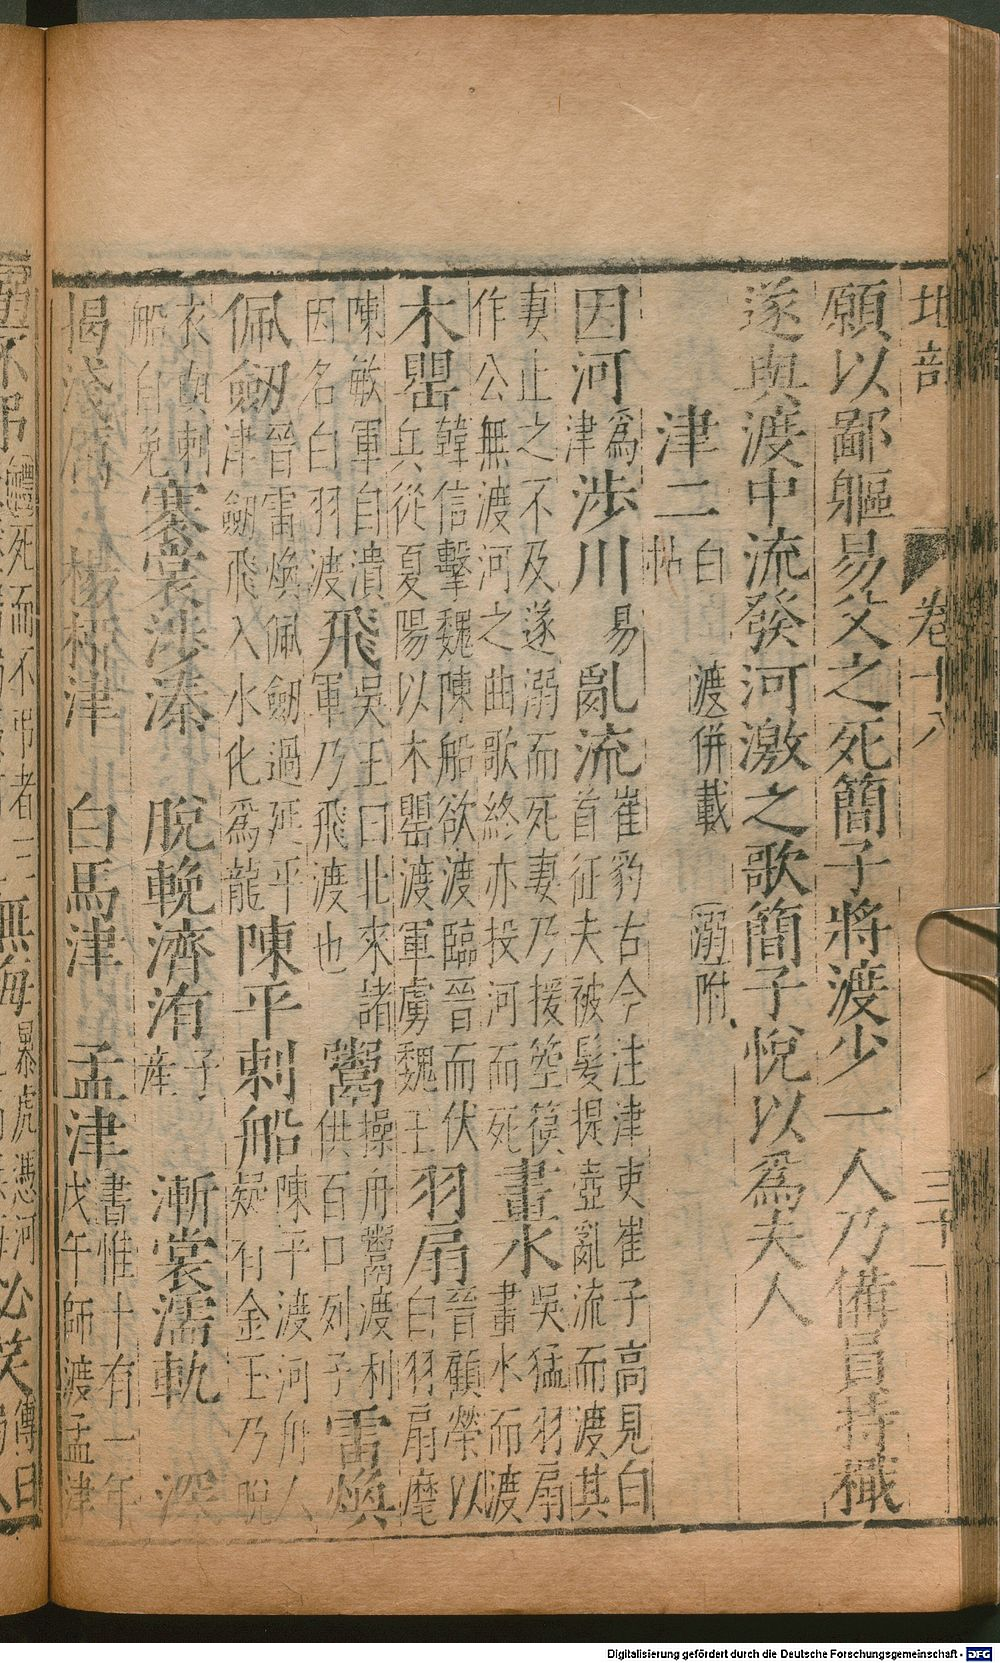 地部 卷十八 三十一
願以鄙軀易父之死簡子將渡少一人乃備員持檝
遂與渡中流發河激之歌簡子悅以爲夫人
津二 白帖 渡併載 溺附
因河 爲津 涉川 易 亂流 崔豹古今注津吏崔子高見白首征夫被髮提壺亂流而渡其
妻止之不及遂溺而死妻乃援箜篌作公無渡河之曲歌終亦投河而死 畫水 吳猛羽扇畫水而渡
木罌 韓信擊魏陳船欲渡臨晉而伏兵從夏陽以木罌渡軍虜魏王 羽扇 晉顧榮以白羽扇麾
陳敏軍自潰因名白羽渡 飛 吳王曰北來諸軍乃飛渡也 鬻 操舟鬻渡利供百口列子 雷煥
佩劒 晉雷煥佩劒過延平津劒飛入水化爲龍 陳平刺船 陳平渡河舟人疑有金玉乃脫
衣與刺船自免 褰裳涉溱 脫輓濟洧 子產 漸裳濡軌 深
揭淺厲 楊柳津 白馬津 孟津 書惟十有一年戊午師渡孟津
而不弔者三 無悔 暴虎馮河 必笑 傳曰
Digitalisierung gefördert durch die Deutsche Forschungsgemeinschaft - DFG